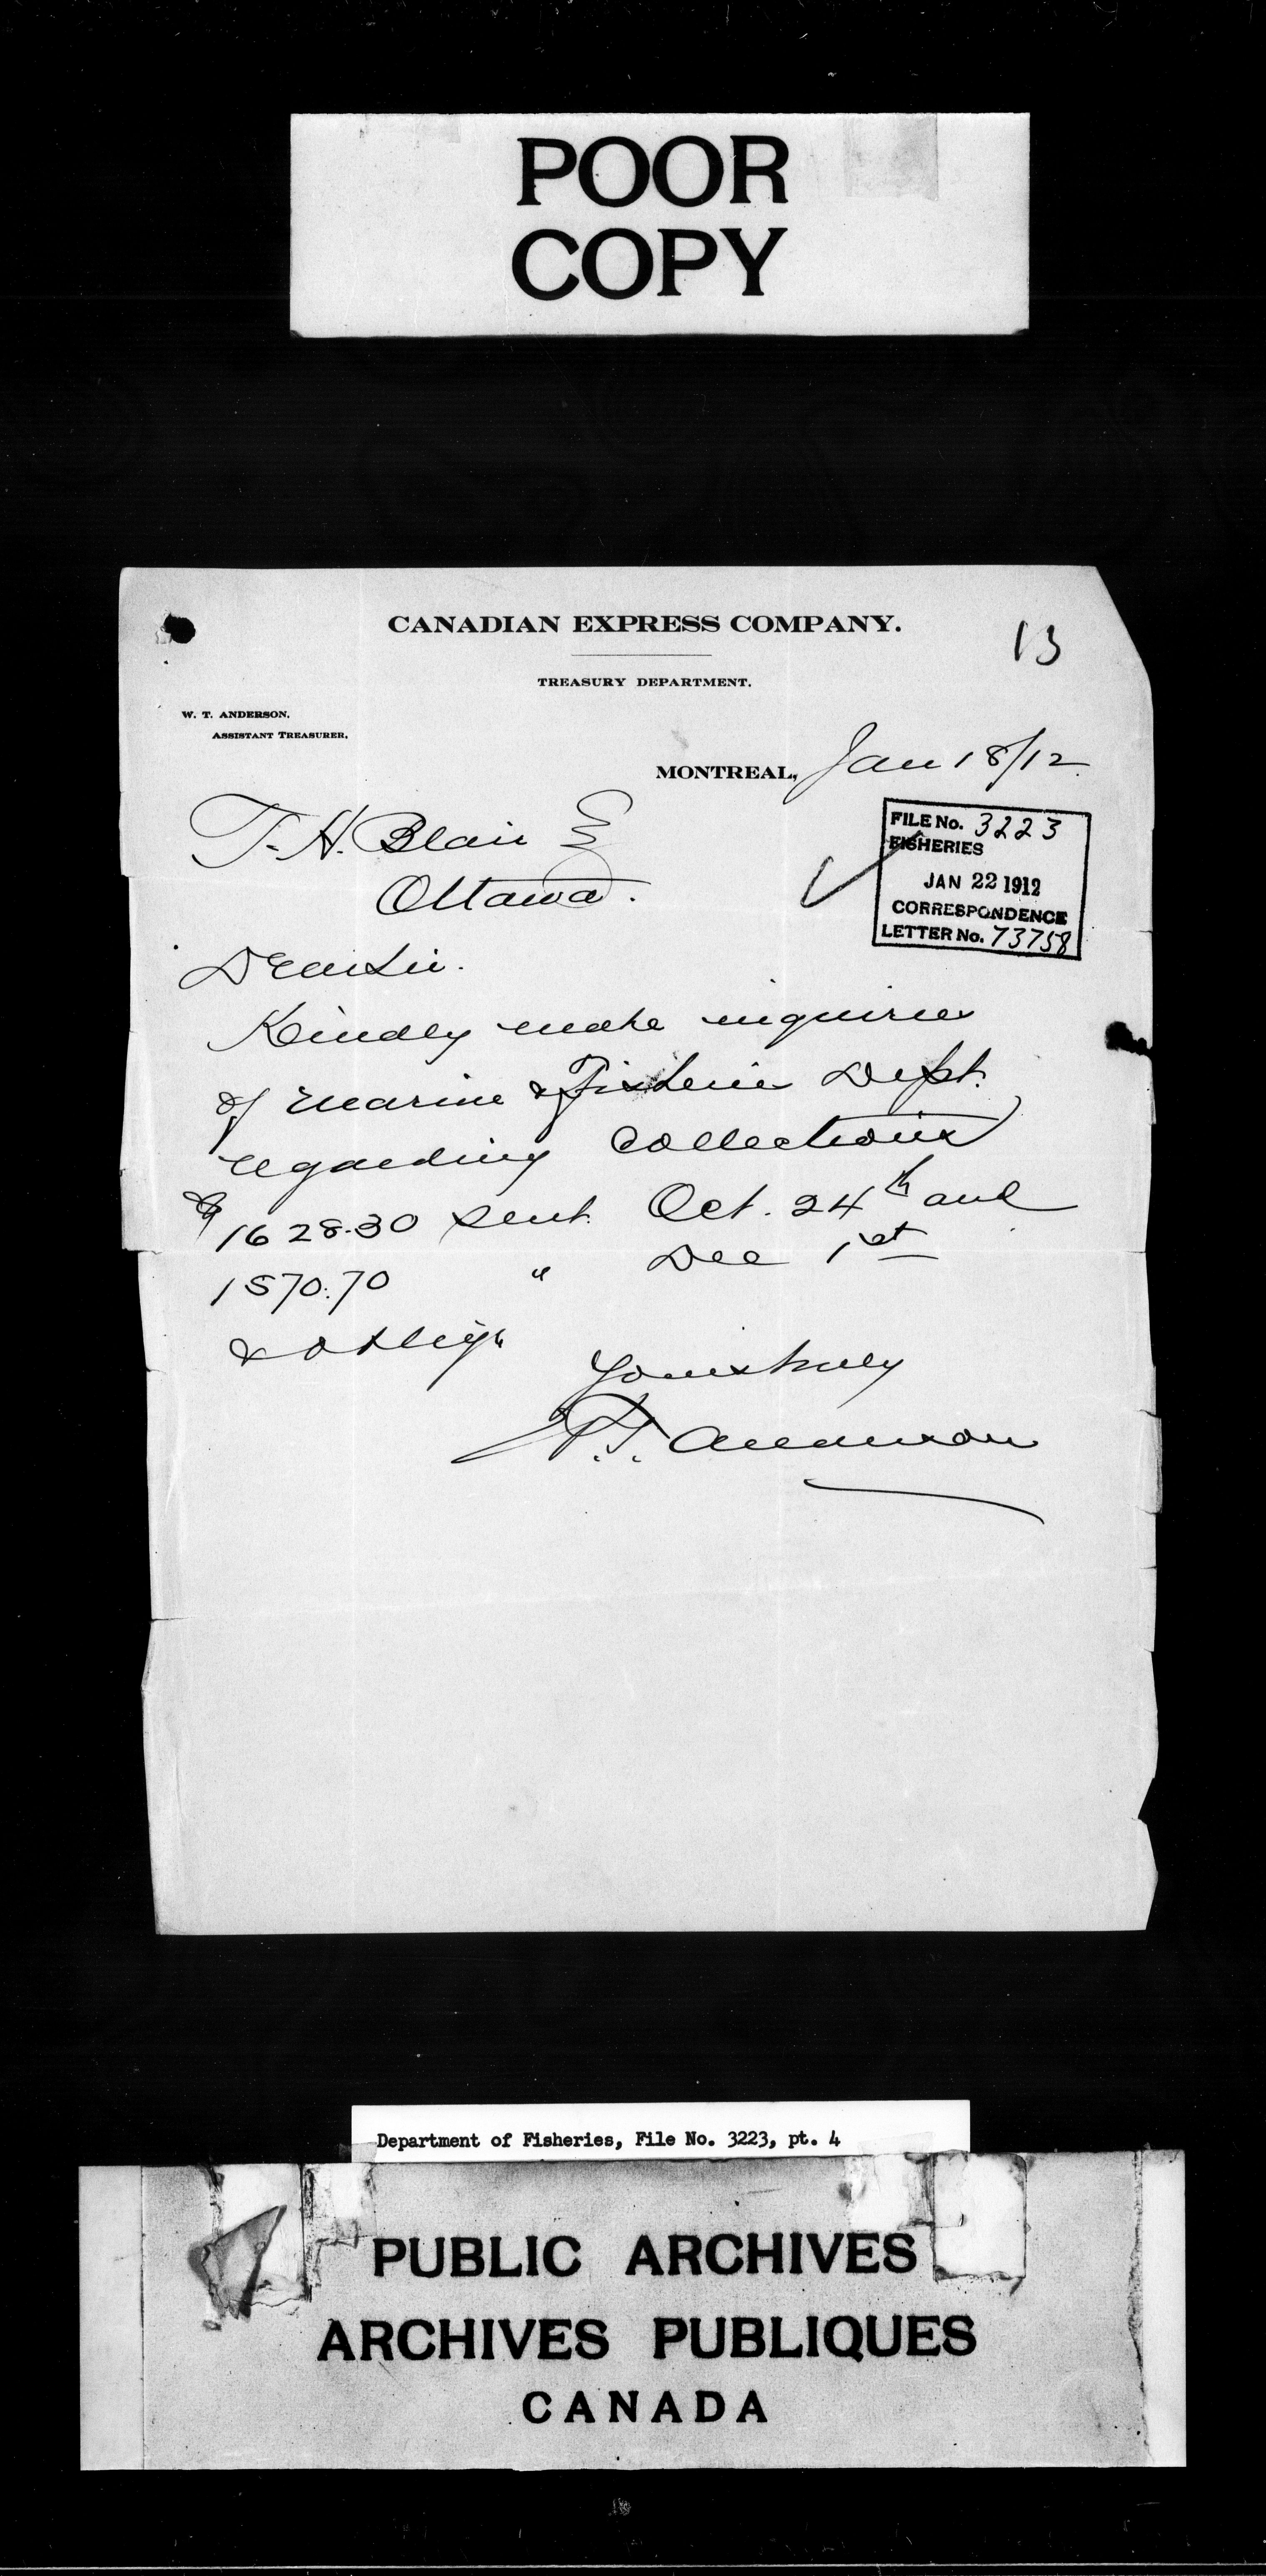 POOR
COPY
CANADIAN EXPRESS COMPANY.
13
TREASURY DEPARTMENT.
W. T. ANDERSON.
ASSISTANT TREASURER.
MONTREAL, Jan 18/12
T. H. Blair E
Ottawa.
FILE No. 3223
FISHERIES
JAN 22 1912
CORRESPONDENCE
LETTER No. 73758
Dear Sir.
Kindly make inquiries
of Marine & Fisheries Dept.
regarding Collections
$1628.30 sent Oct. 24th and
1570.70 " Dec 1st
& oblige
Yours truly
W. T. Anderson
Department of Fisheries, File No. 3223, pt. 4
PUBLIC ARCHIVES
ARCHIVES PUBLIQUES
CANADA